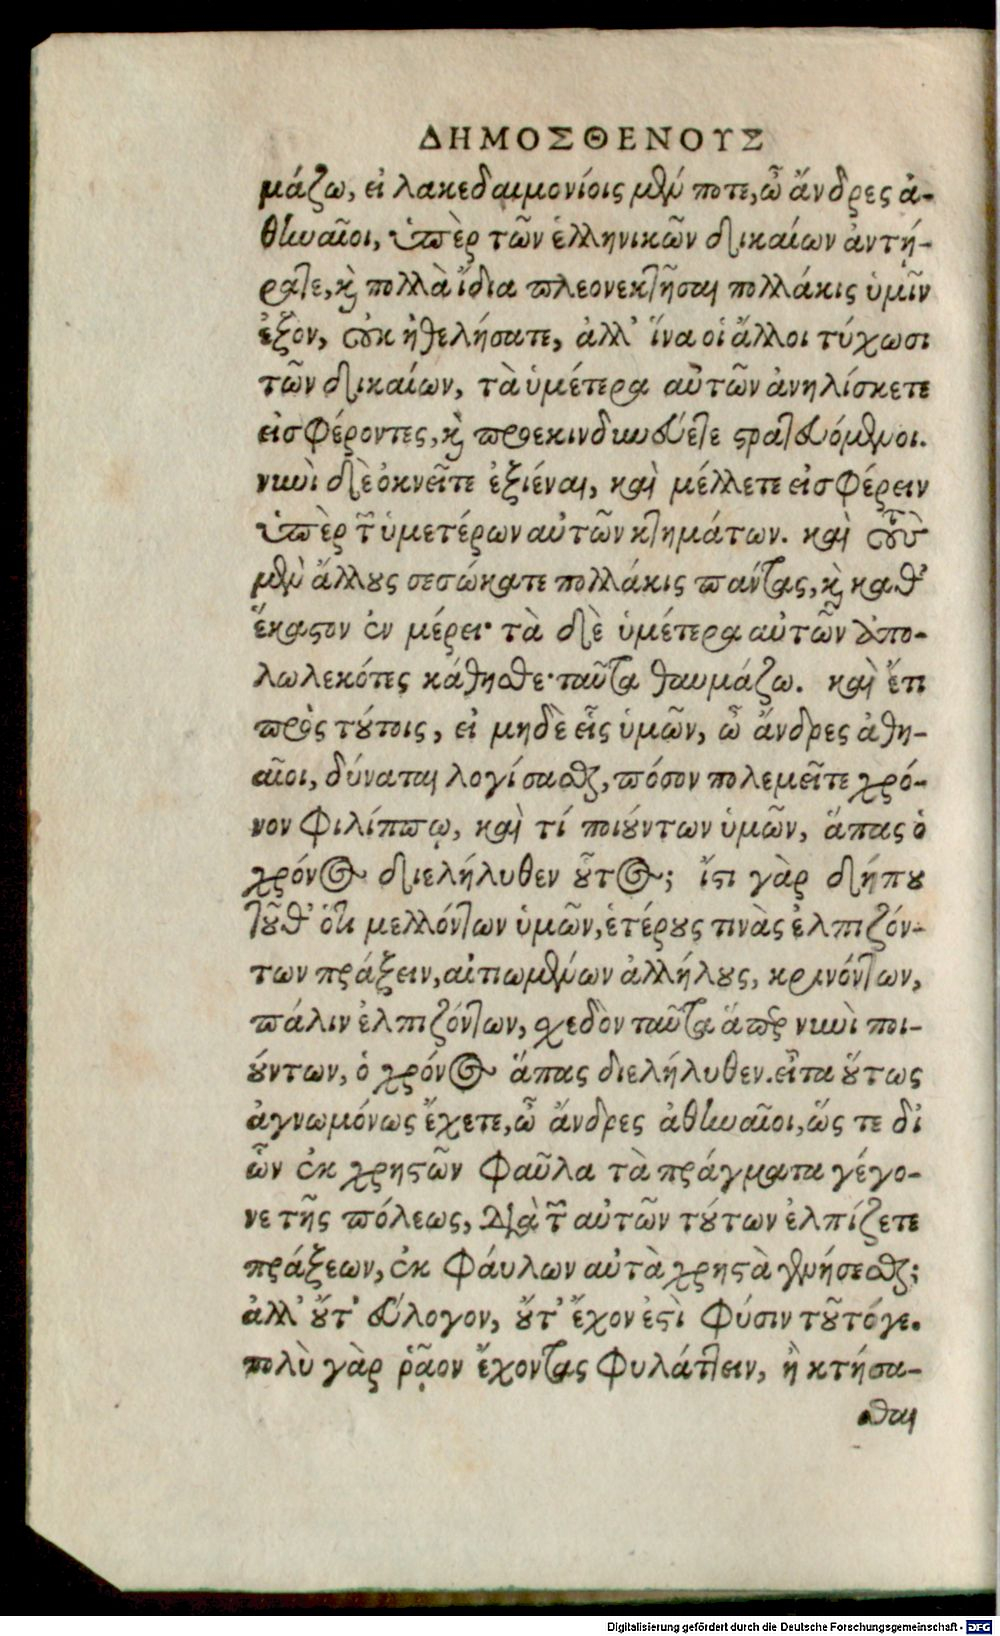 ΔΗΜΟΣΘΕΝΟΥΣ
μάζω, εἰ λακεδαιμονίοις μὲν ποτε, ὦ ἄνδρες ἀ-
θηναῖοι, ὑπὲρ τῶν ἑλληνικῶν δικαίων ἀντή-
ρατε, καὶ πολλὰ ἴδια πλεονεκτῆσαι πολλάκις ὑμῖν
ἐξὸν, οὐκ ἠθελήσατε, ἀλλ' ἵνα οἱ ἄλλοι τύχωσι
τῶν δικαίων, τὰ ὑμέτερα αὐτῶν ἀνηλίσκετε
εἰσφέροντες, καὶ προεκινδυνεύετε στρατευόμενοι.
νυνὶ δὲ ὀκνεῖτε ἐξιέναι, καὶ μέλλετε εἰσφέρειν
ὑπὲρ τῶν ὑμετέρων αὐτῶν κτημάτων. καὶ τοὺς
μὲν ἄλλους σεσώκατε πολλάκις πάντας, καὶ καθ'
ἕκαστον ἐν μέρει· τὰ δὲ ὑμέτερα αὐτῶν ἀπο-
λωλεκότες κάθησθε· ταῦτα θαυμάζω. καὶ ἔτι
πρὸς τούτοις, εἰ μηδὲ εἷς ὑμῶν, ὦ ἄνδρες ἀθη-
αῖοι, δύναται λογίσασθαι, πόσον πολεμεῖτε χρό-
νον Φιλίππῳ, καὶ τί ποιούντων ὑμῶν, ἅπας ὁ
χρόνος διελήλυθεν οὗτος; ἴστε γὰρ δήπου
τοῦθ' ὅτι μελλόντων ὑμῶν, ἑτέρους τινὰς ἐλπιζόν-
των πράξειν, αἰτιωμένων ἀλλήλους, κρινόντων,
πάλιν ἐλπιζόντων, σχεδὸν ταῦτα ἅπερ νυνὶ ποι-
ούντων, ὁ χρόνος ἅπας διελήλυθεν. εἶτα οὕτως
ἀγνωμόνως ἔχετε, ὦ ἄνδρες ἀθηναῖοι, ὥς τε δι'
ὧν ἐκ χρηστῶν Φαῦλα τὰ πράγματα γέγο-
νε τῆς πόλεως, διὰ τῶν αὐτῶν τούτων ἐλπίζετε
πράξεων, ἐκ Φαύλων αὐτὰ χρηστὰ γενήσεσθαι;
ἀλλ' οὔτ' εὔλογον, οὔτ' ἔχον ἐστὶ Φύσιν τοῦτό γε.
πολὺ γὰρ ῥᾷον ἔχοντας Φυλάττειν, ἢ κτήσα-
σθαι
Digitalisierung gefördert durch die Deutsche Forschungsgemeinschaft - DFG